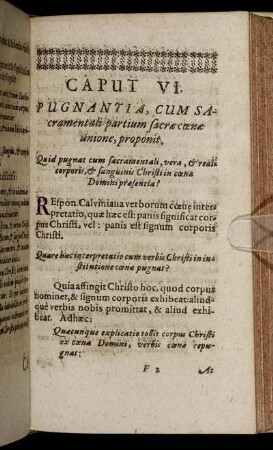 CAPUT VI.
PUGNANTIA, CUM SA-
cramentali partium sacræ cœnæ
unione, proponit.
Quid pugnat cum sacramentali, vera, & reali
corporis, & sanguinis Christi in cœna
Domini præsentia?
REspon. Calviniana verborum cœnę inter
pretatio, quæ hæc est: panis significat cor-
pus Christi, vel: panis est signum corporis
Christi.
Quare hæc interpretatio cum verbis Christi in in-
stitutione cœna pugnat?
Quia affingit Christo hoc, quod corpus
nominet, & signum corporis exhibeat: aliud-
que verbis nobis promittat, & aliud exhi-
beat. Adhæc:
Quæcunque explicatio tollit corpus Christi
ex cœna Domini, verbis cœnæ repu-
gnat:
F 2 At